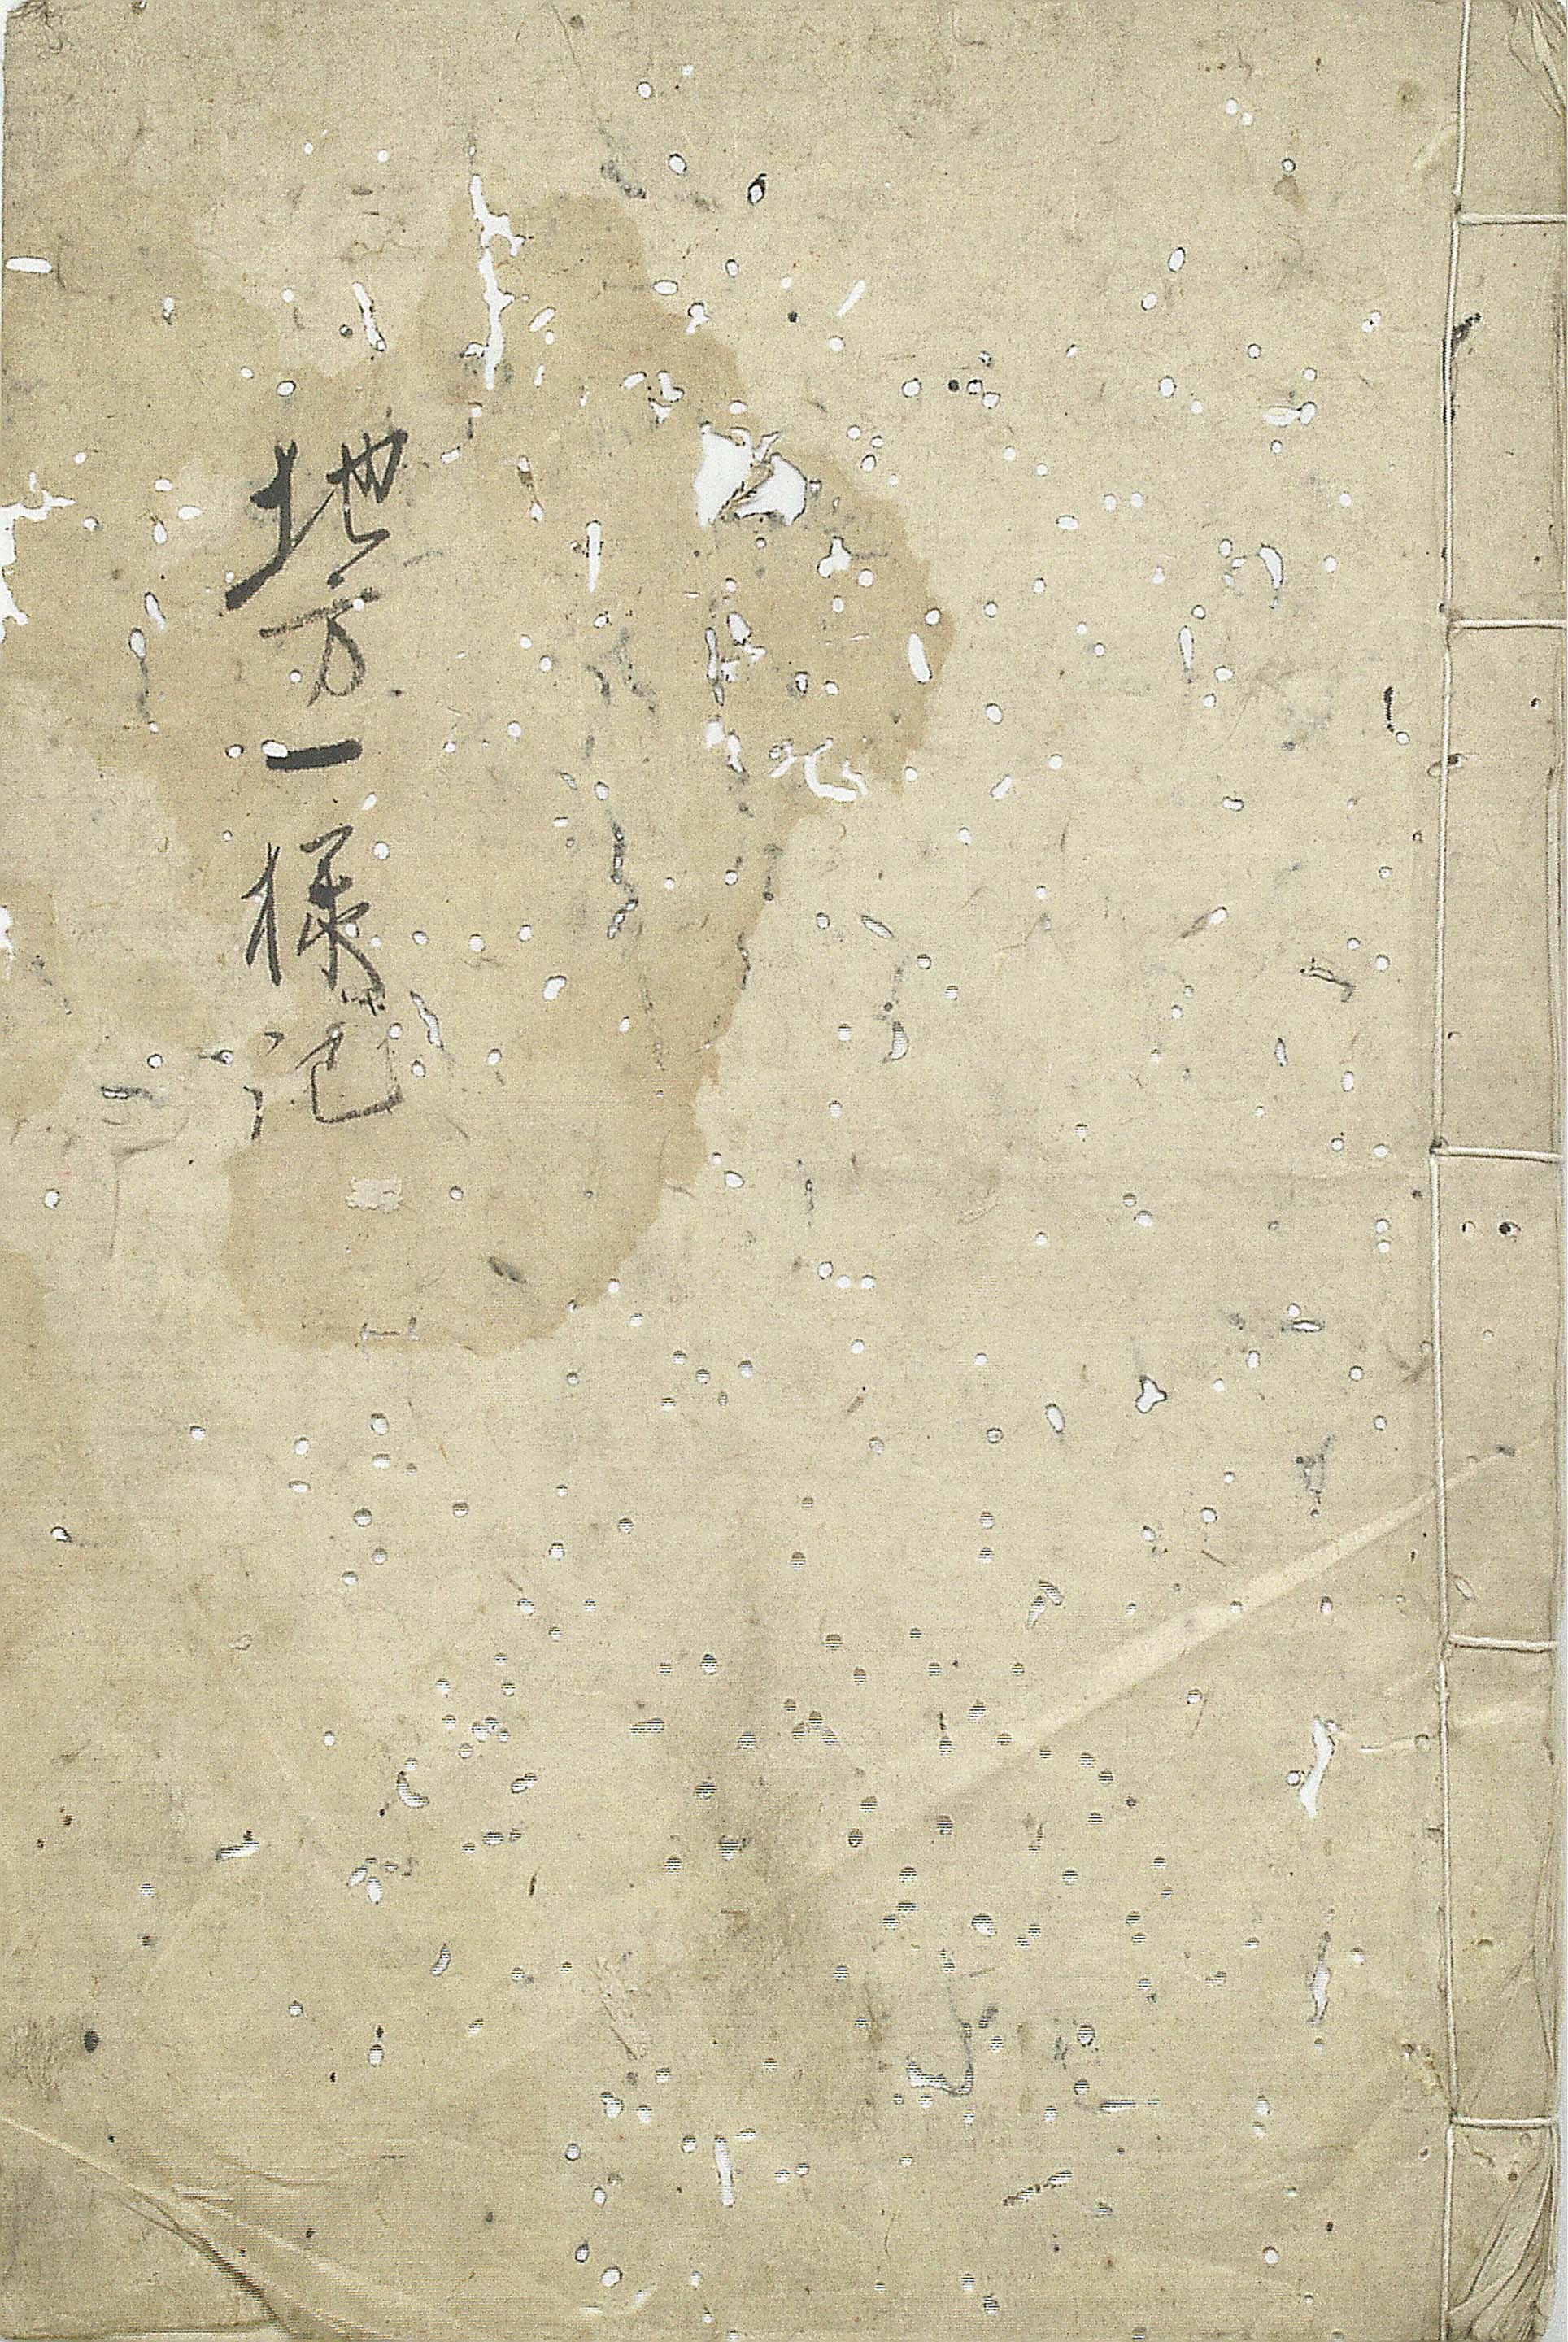 地方一様記